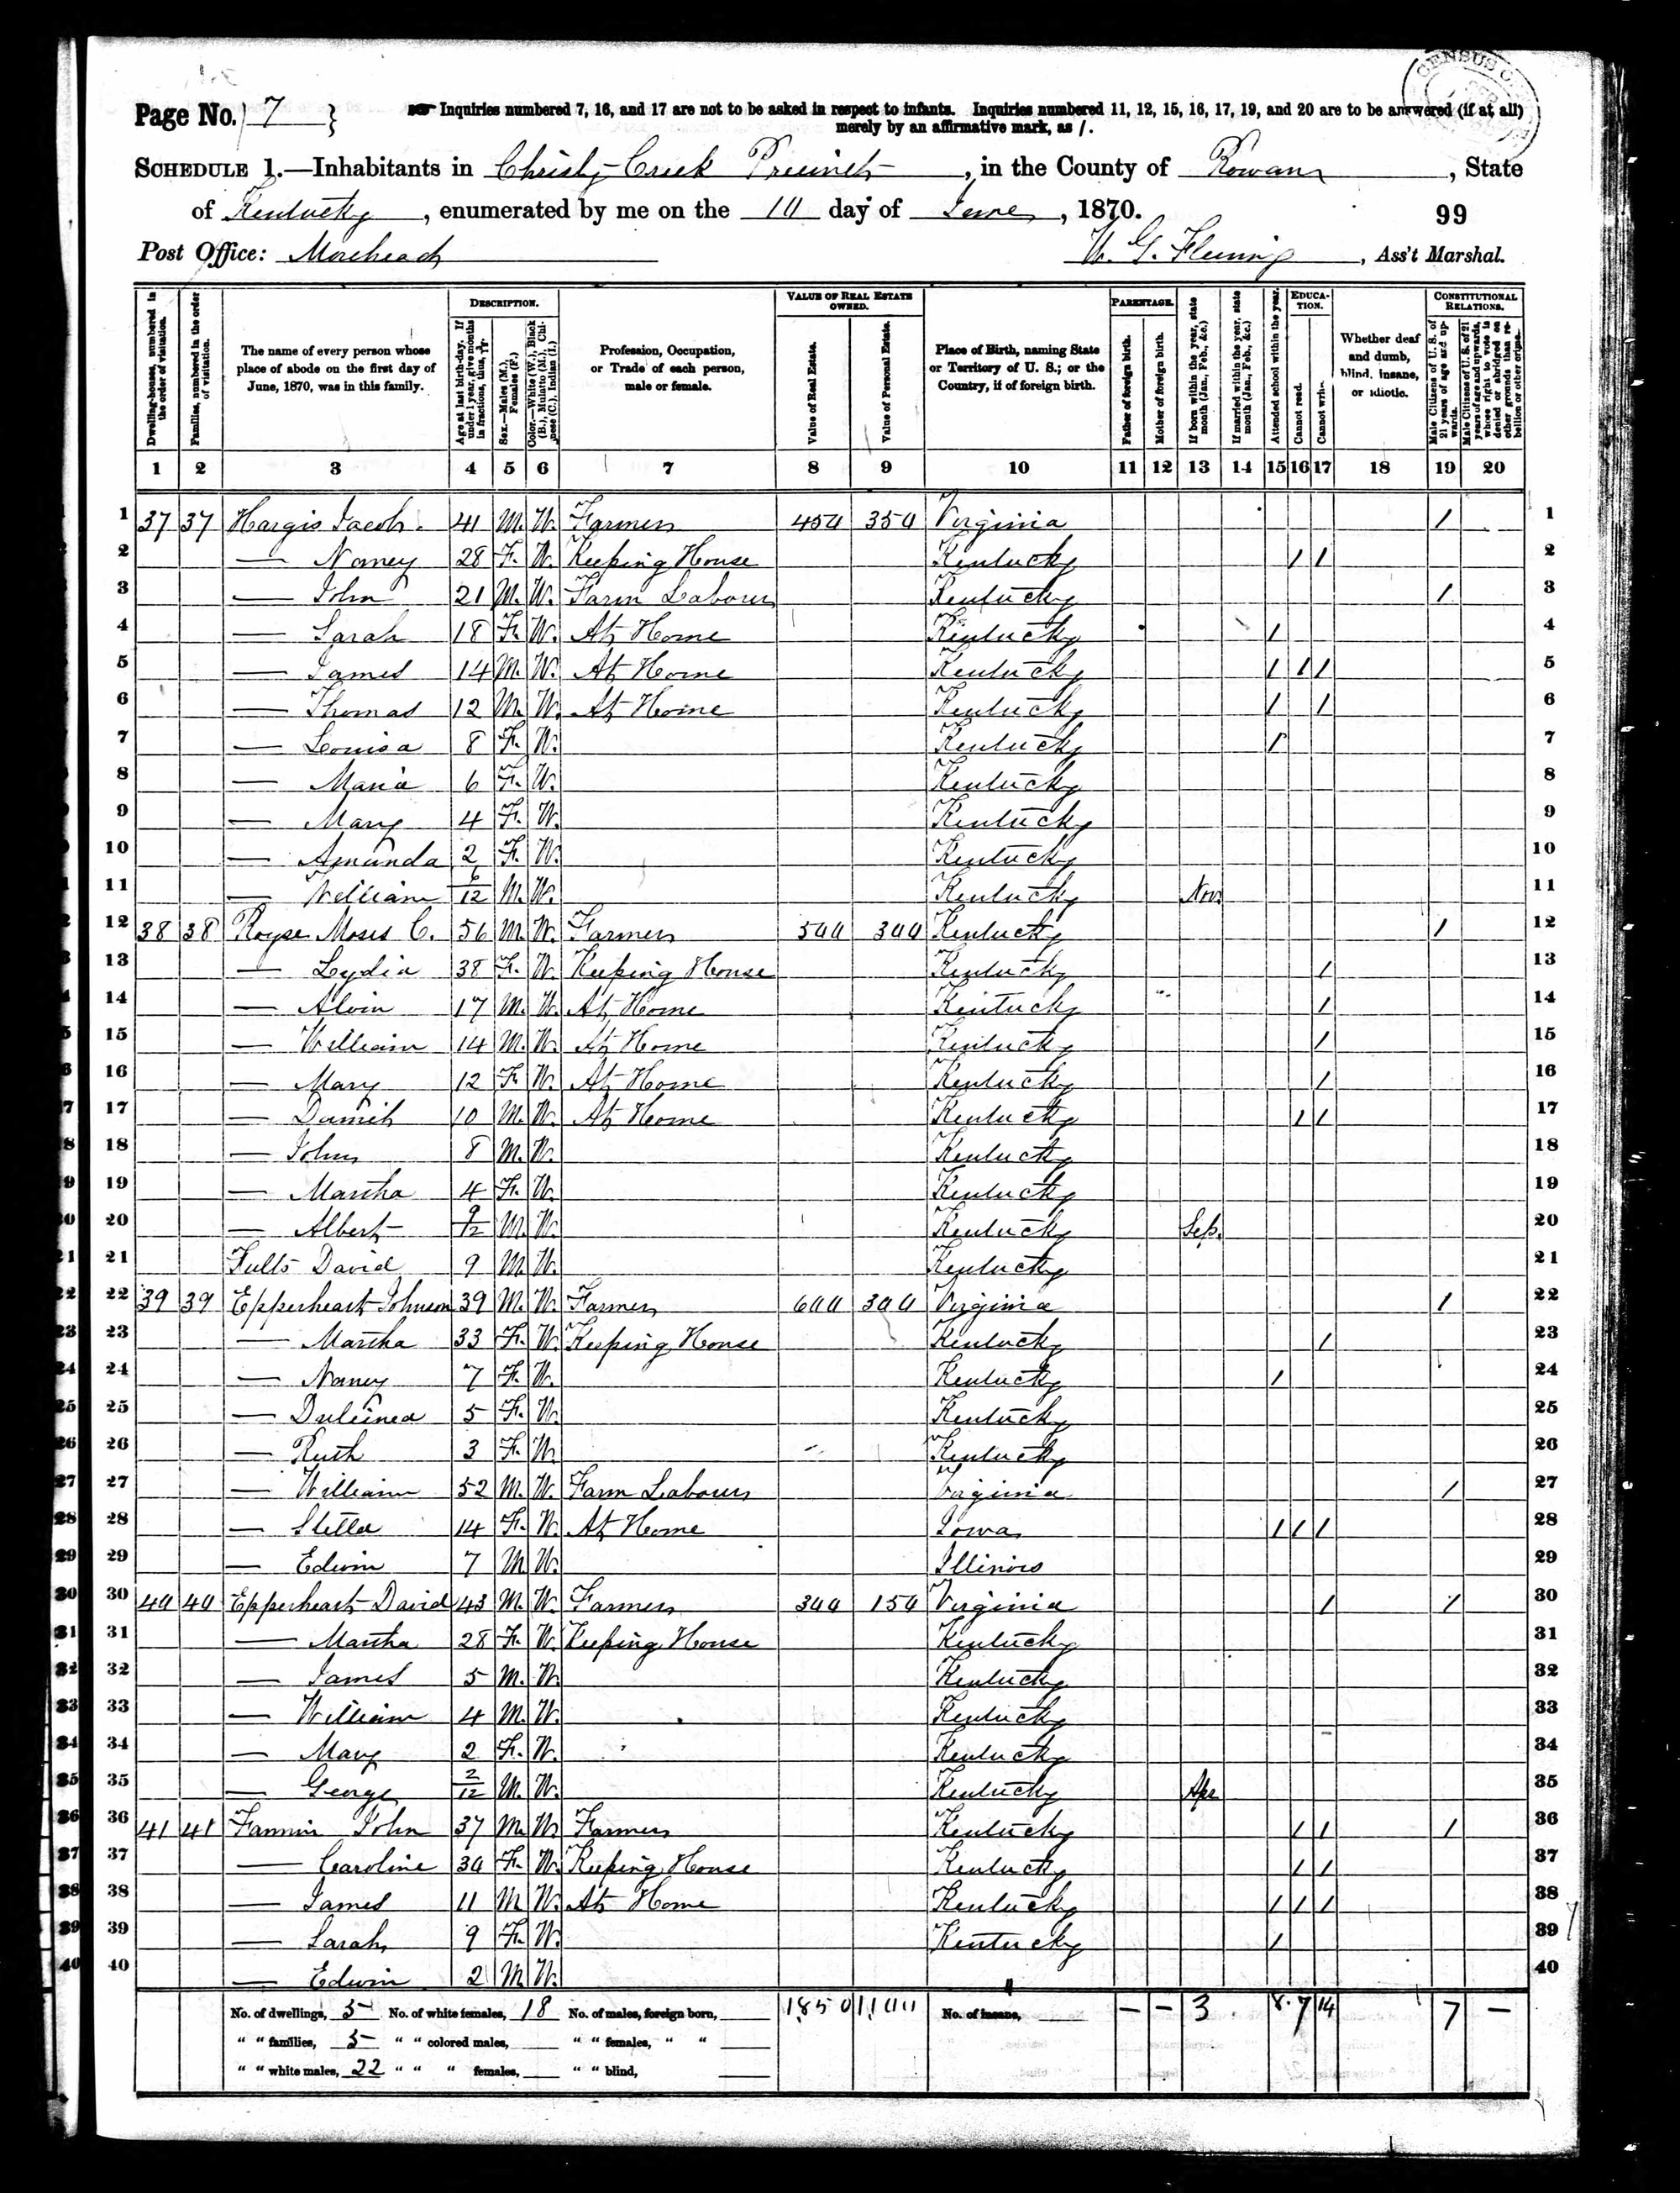 Page No. 7
Inquiries numbered 7, 16, and 17 are not to be asked in respect to infants. Inquiries numbered 11, 12, 15, 16, 17, 19, and 20 are to be answered (if at all)
merely by an affirmative mark, as /.
SCHEDULE 1.—Inhabitants in Christy Creek Precinct, in the County of Rowan, State
of Kentucky, enumerated by me on the 10 day of June, 1870.
99
Post Office: Morehead
W. G. Fleming, Ass't Marshal.
Dwelling-houses, numbered in the order of visitation.
Families, numbered in the order of visitation.
The name of every person whose place of abode on the first day of June, 1870, was in this family.
DESCRIPTION.
Age at last birth-day. If under 1 year, give months in fractions, thus,
Sex.—Males (M.), Females (F.)
Color.—White (W.), Black (B.), Mulatto (M.), Chinese (C.), Indian (I.)
Profession, Occupation, or Trade of each person, male or female.
VALUE OF REAL ESTATE OWNED.
Value of Real Estate.
Value of Personal Estate.
Place of Birth, naming State or Territory of U. S.; or the Country, if of foreign birth.
PARENTAGE.
Father of foreign birth.
Mother of foreign birth.
If born within the year, state month (Jan., Feb., &c.)
If married within the year, state month (Jan., Feb., &c.)
Attended school within the year.
EDUCATION.
Cannot read.
Cannot write.
Whether deaf and dumb, blind, insane, or idiotic.
CONSTITUTIONAL RELATIONS.
Male Citizens of U. S. of 21 years of age and upwards.
Male Citizens of U. S. of 21 years of age and upwards, whose right to vote is denied or abridged on other grounds than rebellion or other crime.
1 2 3 4 5 6 7 8 9 10 11 12 13 14 15 16 17 18 19 20
1 37 37 Hargis Jacob 41 M. W. Farmer 450 350 Virginia / 1
2 — Nancy 28 F. W. Keeping House Kentucky / / 2
3 — John 21 M. W. Farm Labourer Kentucky / 3
4 — Sarah 18 F. W. At Home Kentucky / 4
5 — James 14 M. W. At Home Kentucky / / / 5
6 — Thomas 12 M. W. At Home Kentucky / / 6
7 — Louisa 8 F. W. Kentucky / 7
8 — Maria 6 F. W. Kentucky 8
9 — Mary 4 F. W. Kentucky 9
10 — Amanda 2 F. W. Kentucky 10
11 — William 6/12 M. W. Kentucky Nov 11
12 38 38 Royse Moses C. 56 M. W. Farmer 500 300 Kentucky / 12
13 — Lydia 38 F. W. Keeping House Kentucky / 13
14 — Alvin 17 M. W. At Home Kentucky / 14
15 — William 14 M. W. At Home Kentucky / 15
16 — Mary 12 F. W. At Home Kentucky / 16
17 — Daniel 10 M. W. At Home Kentucky / / 17
18 — John 8 M. W. Kentucky 18
19 — Martha 4 F. W. Kentucky 19
20 — Albert 9/12 M. W. Kentucky Sep. 20
21 Fults David 9 M. W. Kentucky 21
22 39 39 Epperheart Johnson 39 M. W. Farmer 600 300 Virginia / 22
23 — Martha 33 F. W. Keeping House Kentucky / 23
24 — Nancy 7 F. W. Kentucky / 24
25 — Dulcinea 5 F. W. Kentucky 25
26 — Ruth 3 F. W. Kentucky 26
27 — William 52 M. W. Farm Labourer Virginia / 27
28 — Stella 14 F. W. At Home Iowa / / / 28
29 — Edwin 7 M. W. Illinois 29
30 40 40 Epperheart David 43 M. W. Farmer 300 150 Virginia / / 30
31 — Martha 28 F. W. Keeping House Kentucky 31
32 — James 5 M. W. Kentucky 32
33 — William 4 M. W. Kentucky 33
34 — Mary 2 F. W. Kentucky 34
35 — George 2/12 M. W. Kentucky Apr 35
36 41 41 Fannin John 37 M. W. Farmer Kentucky / / / 36
37 — Caroline 30 F. W. Keeping House Kentucky / / 37
38 — James 11 M. W. At Home Kentucky / / / 38
39 — Sarah 9 F. W. Kentucky / 39
40 — Edwin 2 M. W. 40
No. of dwellings, 5 No. of white females, 18 No. of males, foreign born, 1850 1100 No. of insane, — — 3 8 7 14 7 —
" " families, 5 " " colored males, " " females, " "
" " white males, 22 " " " females, " " blind,